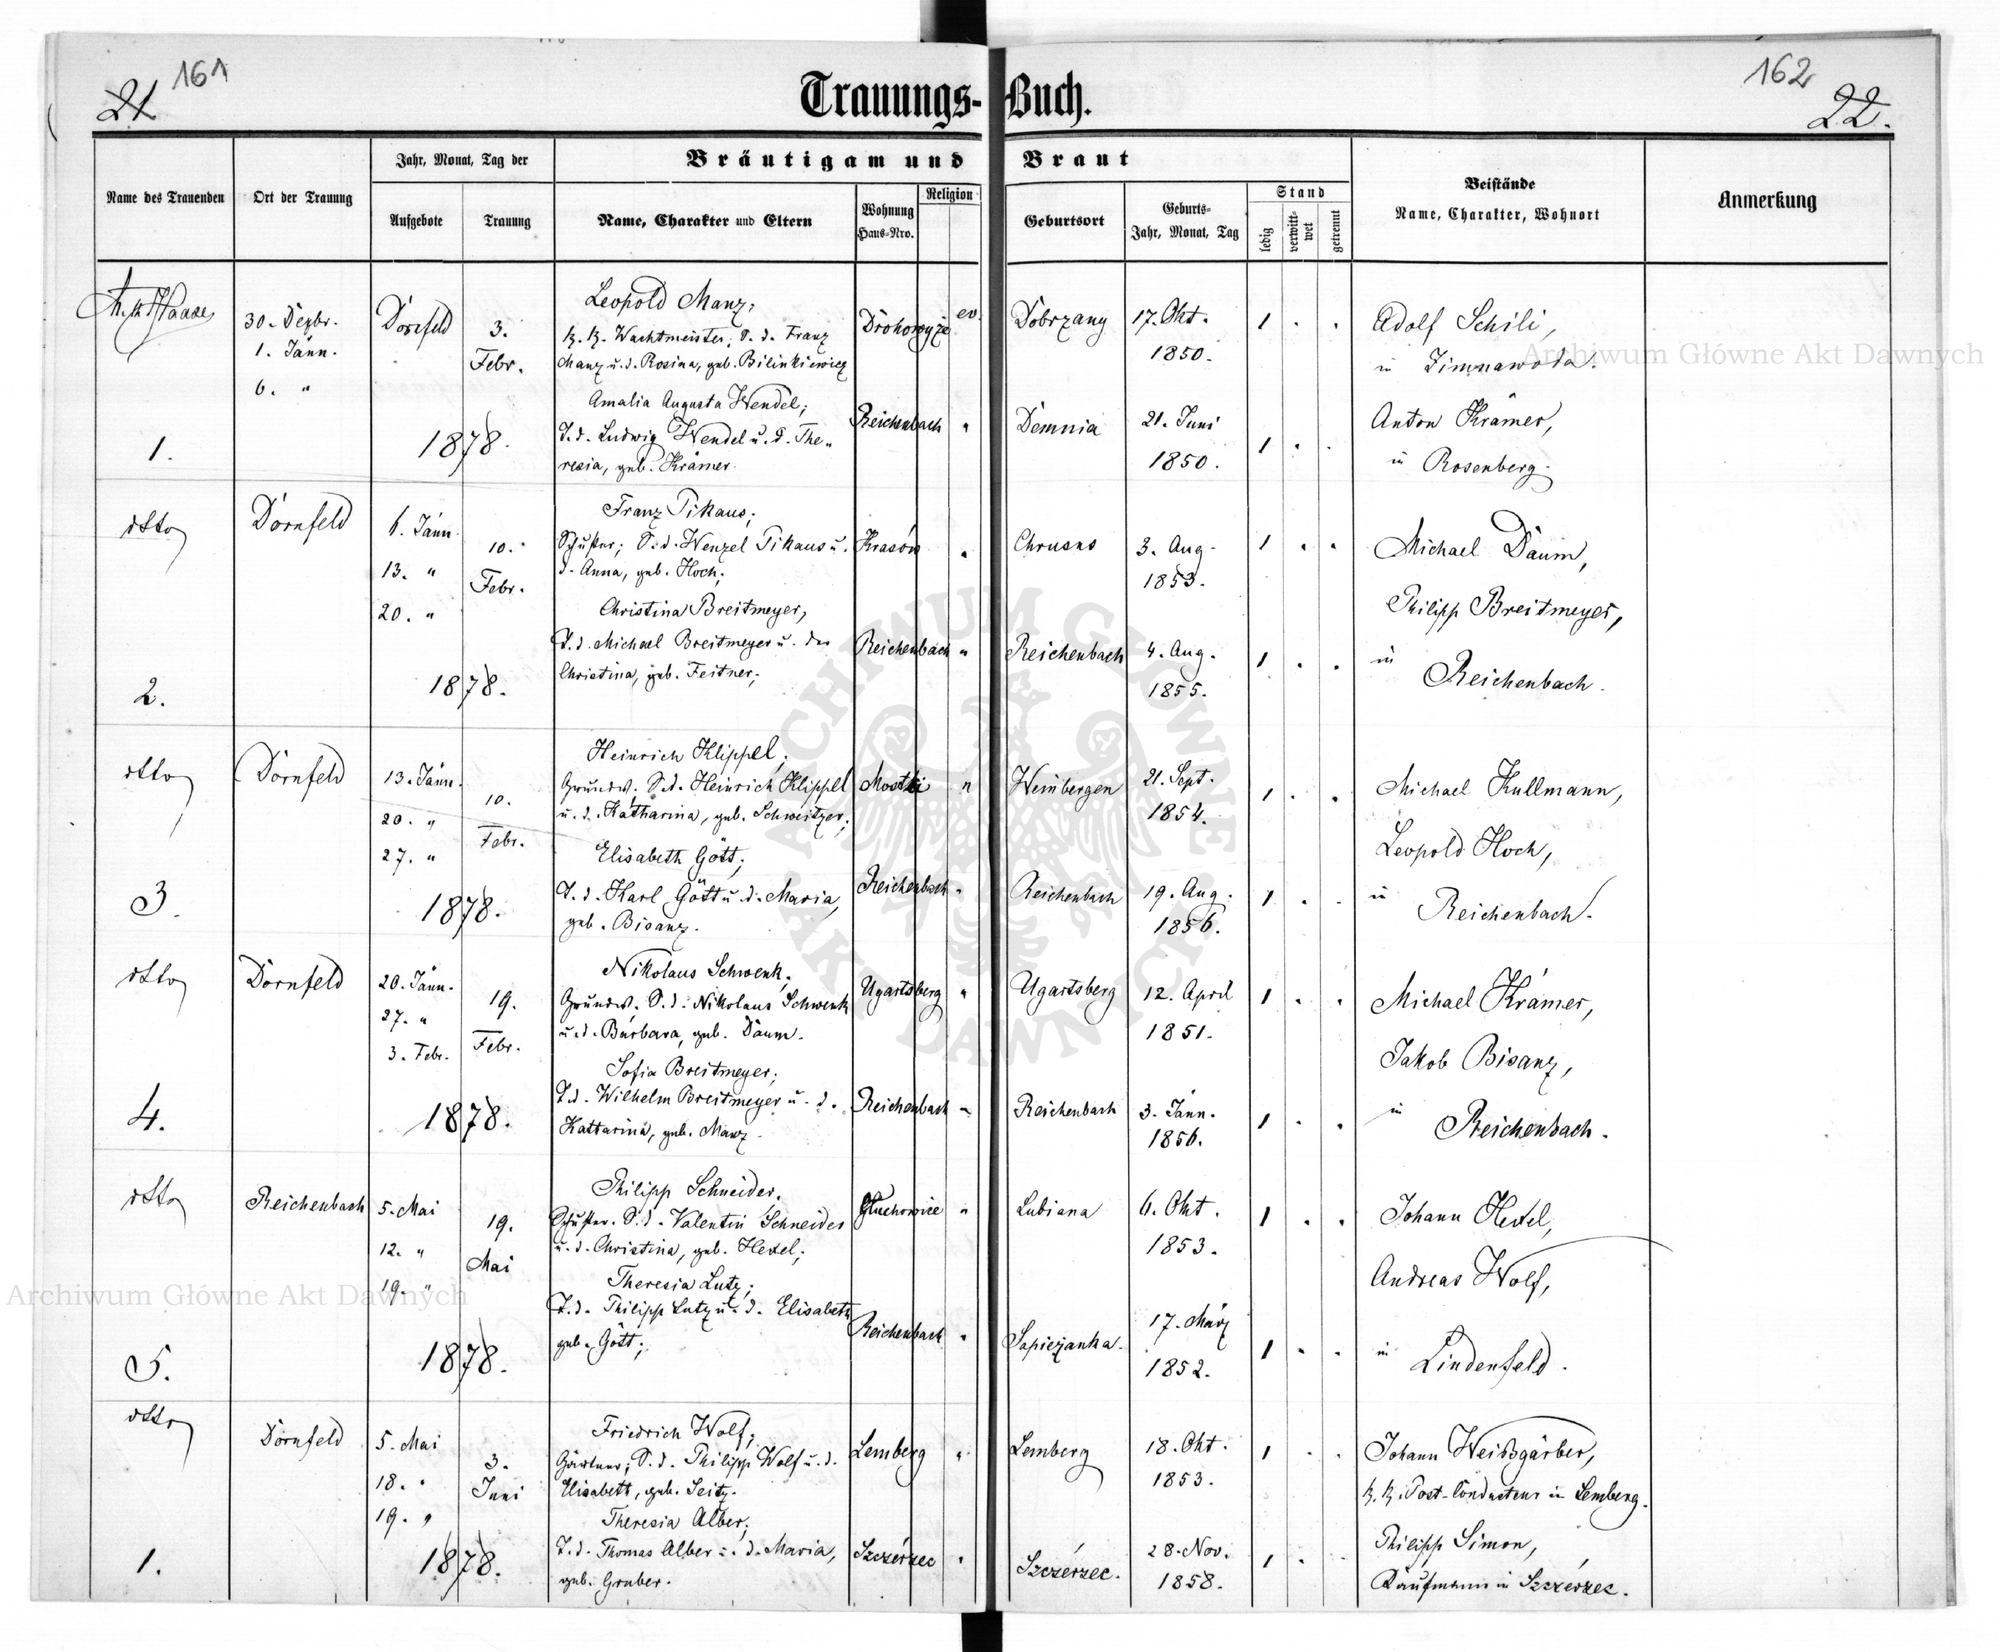 161
21
Trauungs-Buch.
162
22.
Name des Trauenden
Ort der Trauung
Jahr, Monat, Tag der
Aufgebote
Trauung
Bräutigam und Braut
Name, Charakter und Eltern
Wohnung
Haus-Nro.
Religion
Geburtsort
Geburts-
Jahr, Monat, Tag
Stand
ledig
verwitt-
wet
getrennt
Beistände
Name, Charakter, Wohnort
Anmerkung
Haase
30. Dezbr.
1. Jänn.
6. "
Dornfeld
3.
Febr.
1878.
1.
Leopold Manz,
k. k. Wachtmeister; S. d. Franz
Manz u. d. Rosina, geb. Bilinkiewicz
Drohowyże
ev.
Dobrzany
17. Okt.
1850.
1 . .
Adolf Schili,
in Zimnawoda.
Amalia Augusta Wendel;
T. d. Ludwig Wendel u. d. The-
resia, geb. Krämer.
Reichenbach
"
Demnia
21. Juni
1850.
1 . .
Anton Krämer,
in Rosenberg.
dtto
Dornfeld
6. Jänn.
13. "
20. "
10.
Febr.
1878.
2.
Franz Pikaus;
Schuster; S. d. Wenzel Pikaus u.
d. Anna, geb. Hoch;
Krasów
"
Chrusno
3. Aug.
1853.
1 . .
Michael Daum,
Christina Breitmeyer,
T. d. Michael Breitmeyer u. der
Christina, geb. Feitner;
Reichenbach
"
Reichenbach
4. Aug.
1855.
1 . .
Philipp Breitmeyer,
in Reichenbach.
dtto
Dornfeld
13. Jänn.
20. "
27. "
10.
Febr.
1878.
3.
Heinrich Klippel;
Grundw. S. d. Heinrich Klippel
u. d. Katharina, geb. Schweitzer;
Mostki
"
Weinbergen
21. Sept.
1854.
1 . .
Michael Kullmann,
Elisabeth Gött;
T. d. Karl Gött u. d. Maria,
geb. Bisanz.
Reichenbach
"
Reichenbach
19. Aug.
1856.
1 . .
Leopold Hoch,
in Reichenbach.
dtto
Dornfeld
20. Jänn.
27. "
3. Febr.
19.
Febr.
1878.
4.
Nikolaus Schwenk;
Grundw. S. d. Nikolaus Schwenk
u. d. Barbara, geb. Daum.
Ugartsberg
"
Ugartsberg
12. April
1851.
1 . .
Michael Krämer,
Sofia Breitmeyer;
T. d. Wilhelm Breitmeyer u. d.
Katharina, geb. Manz.
Reichenbach
"
Reichenbach
3. Jänn.
1856.
1 . .
Jakob Bisanz,
in Reichenbach.
dtto
Reichenbach
5. Mai
12. "
19. "
19.
Mai
1878.
5.
Philipp Schneider.
Schuster. S. d. Valentin Schneider
u. d. Christina, geb. Hexel;
Głuchowice
"
Lubiana
6. Okt.
1853.
1 . .
Johann Hexel,
Theresia Lutz;
T. d. Philipp Lutz u. d. Elisabeth
geb. Gött;
Reichenbach
"
Sapieżanka.
17. März
1852.
1 . .
Andreas Wolf,
in Lindenfeld.
dtto
Dornfeld
5. Mai
18. "
19. "
3.
Juni
1878.
1.
Friedrich Wolf;
Gärtner; S. d. Philipp Wolf u. d.
Elisabeth, geb. Seitz.
Lemberg
"
Lemberg
18. Okt.
1853.
1 . .
Johann Weißgärber,
k. k. Post-Conducteur in Lemberg.
Theresia Alber;
T. d. Thomas Alber u. d. Maria,
geb. Gruber.
Szczérzec
"
Szczérzec.
28. Nov.
1858.
1 . .
Philipp Simon,
Kaufmann in Szczérzec.
Archiwum Główne Akt Dawnych
Archiwum Główne Akt Dawnych
ARCHIWUM GŁÓWNE AKT DAWNYCH